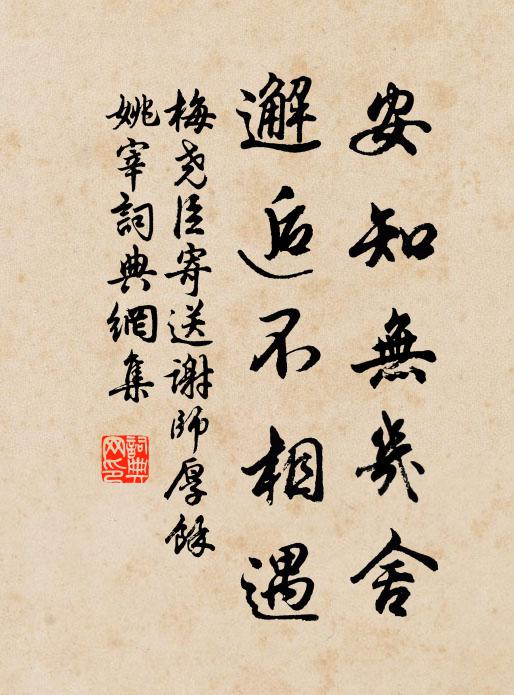 安知無幾舍
邂逅不相遇
梅堯臣寄送謝師厚餘
姚宰詞典網集
詞典
网印